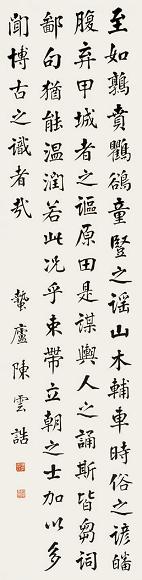 至如鶉賁鸜鵒童豎之謡山木輔車時俗之諺皤
腹弃甲城者之謳原田是謀輿人之誦斯皆芻詞
鄙句猶能温潤若此況乎束帶立朝之士加以多
聞博古之識者哉
蟄廬陳雲誥